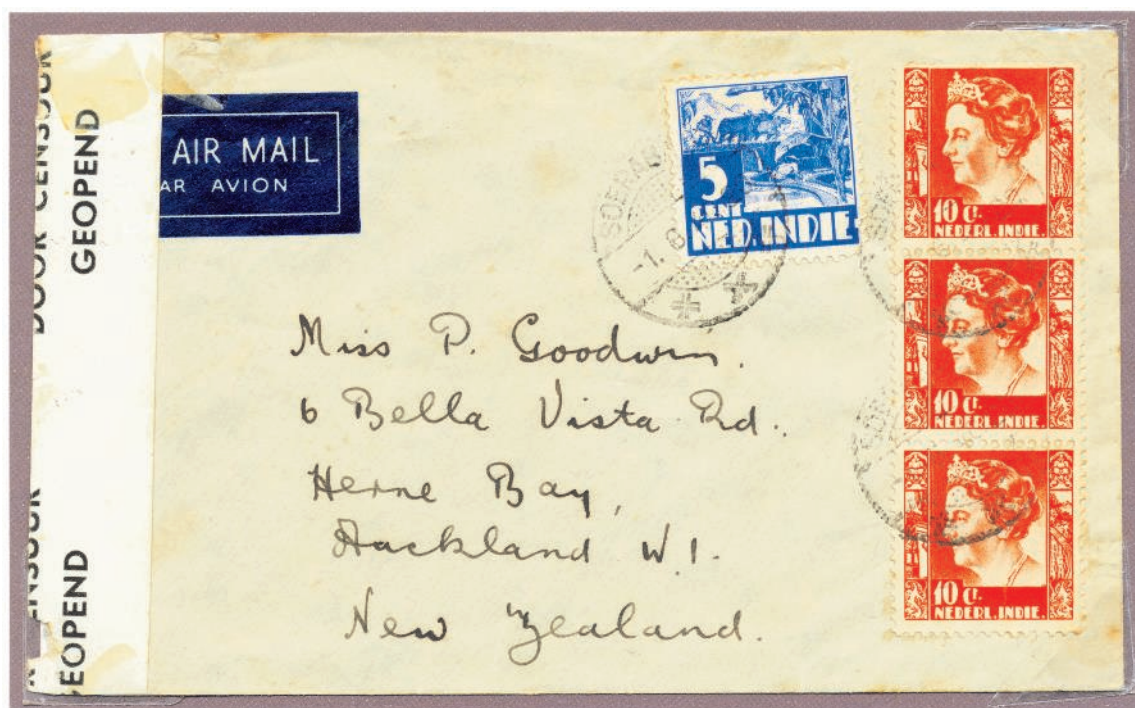 DOOR CENSOUR
GEOPEND
GEOPEND
AIR MAIL
AVION
5
CENT
NED. INDIE
10 Ct.
NEDERL. INDIE.
10 Ct.
NEDERL. INDIE.
10 Ct.
NEDERL. INDIE.
Miss P. Goodwin.
6 Bella Vista Rd.
Herne Bay,
Auckland W.1.
New Zealand.